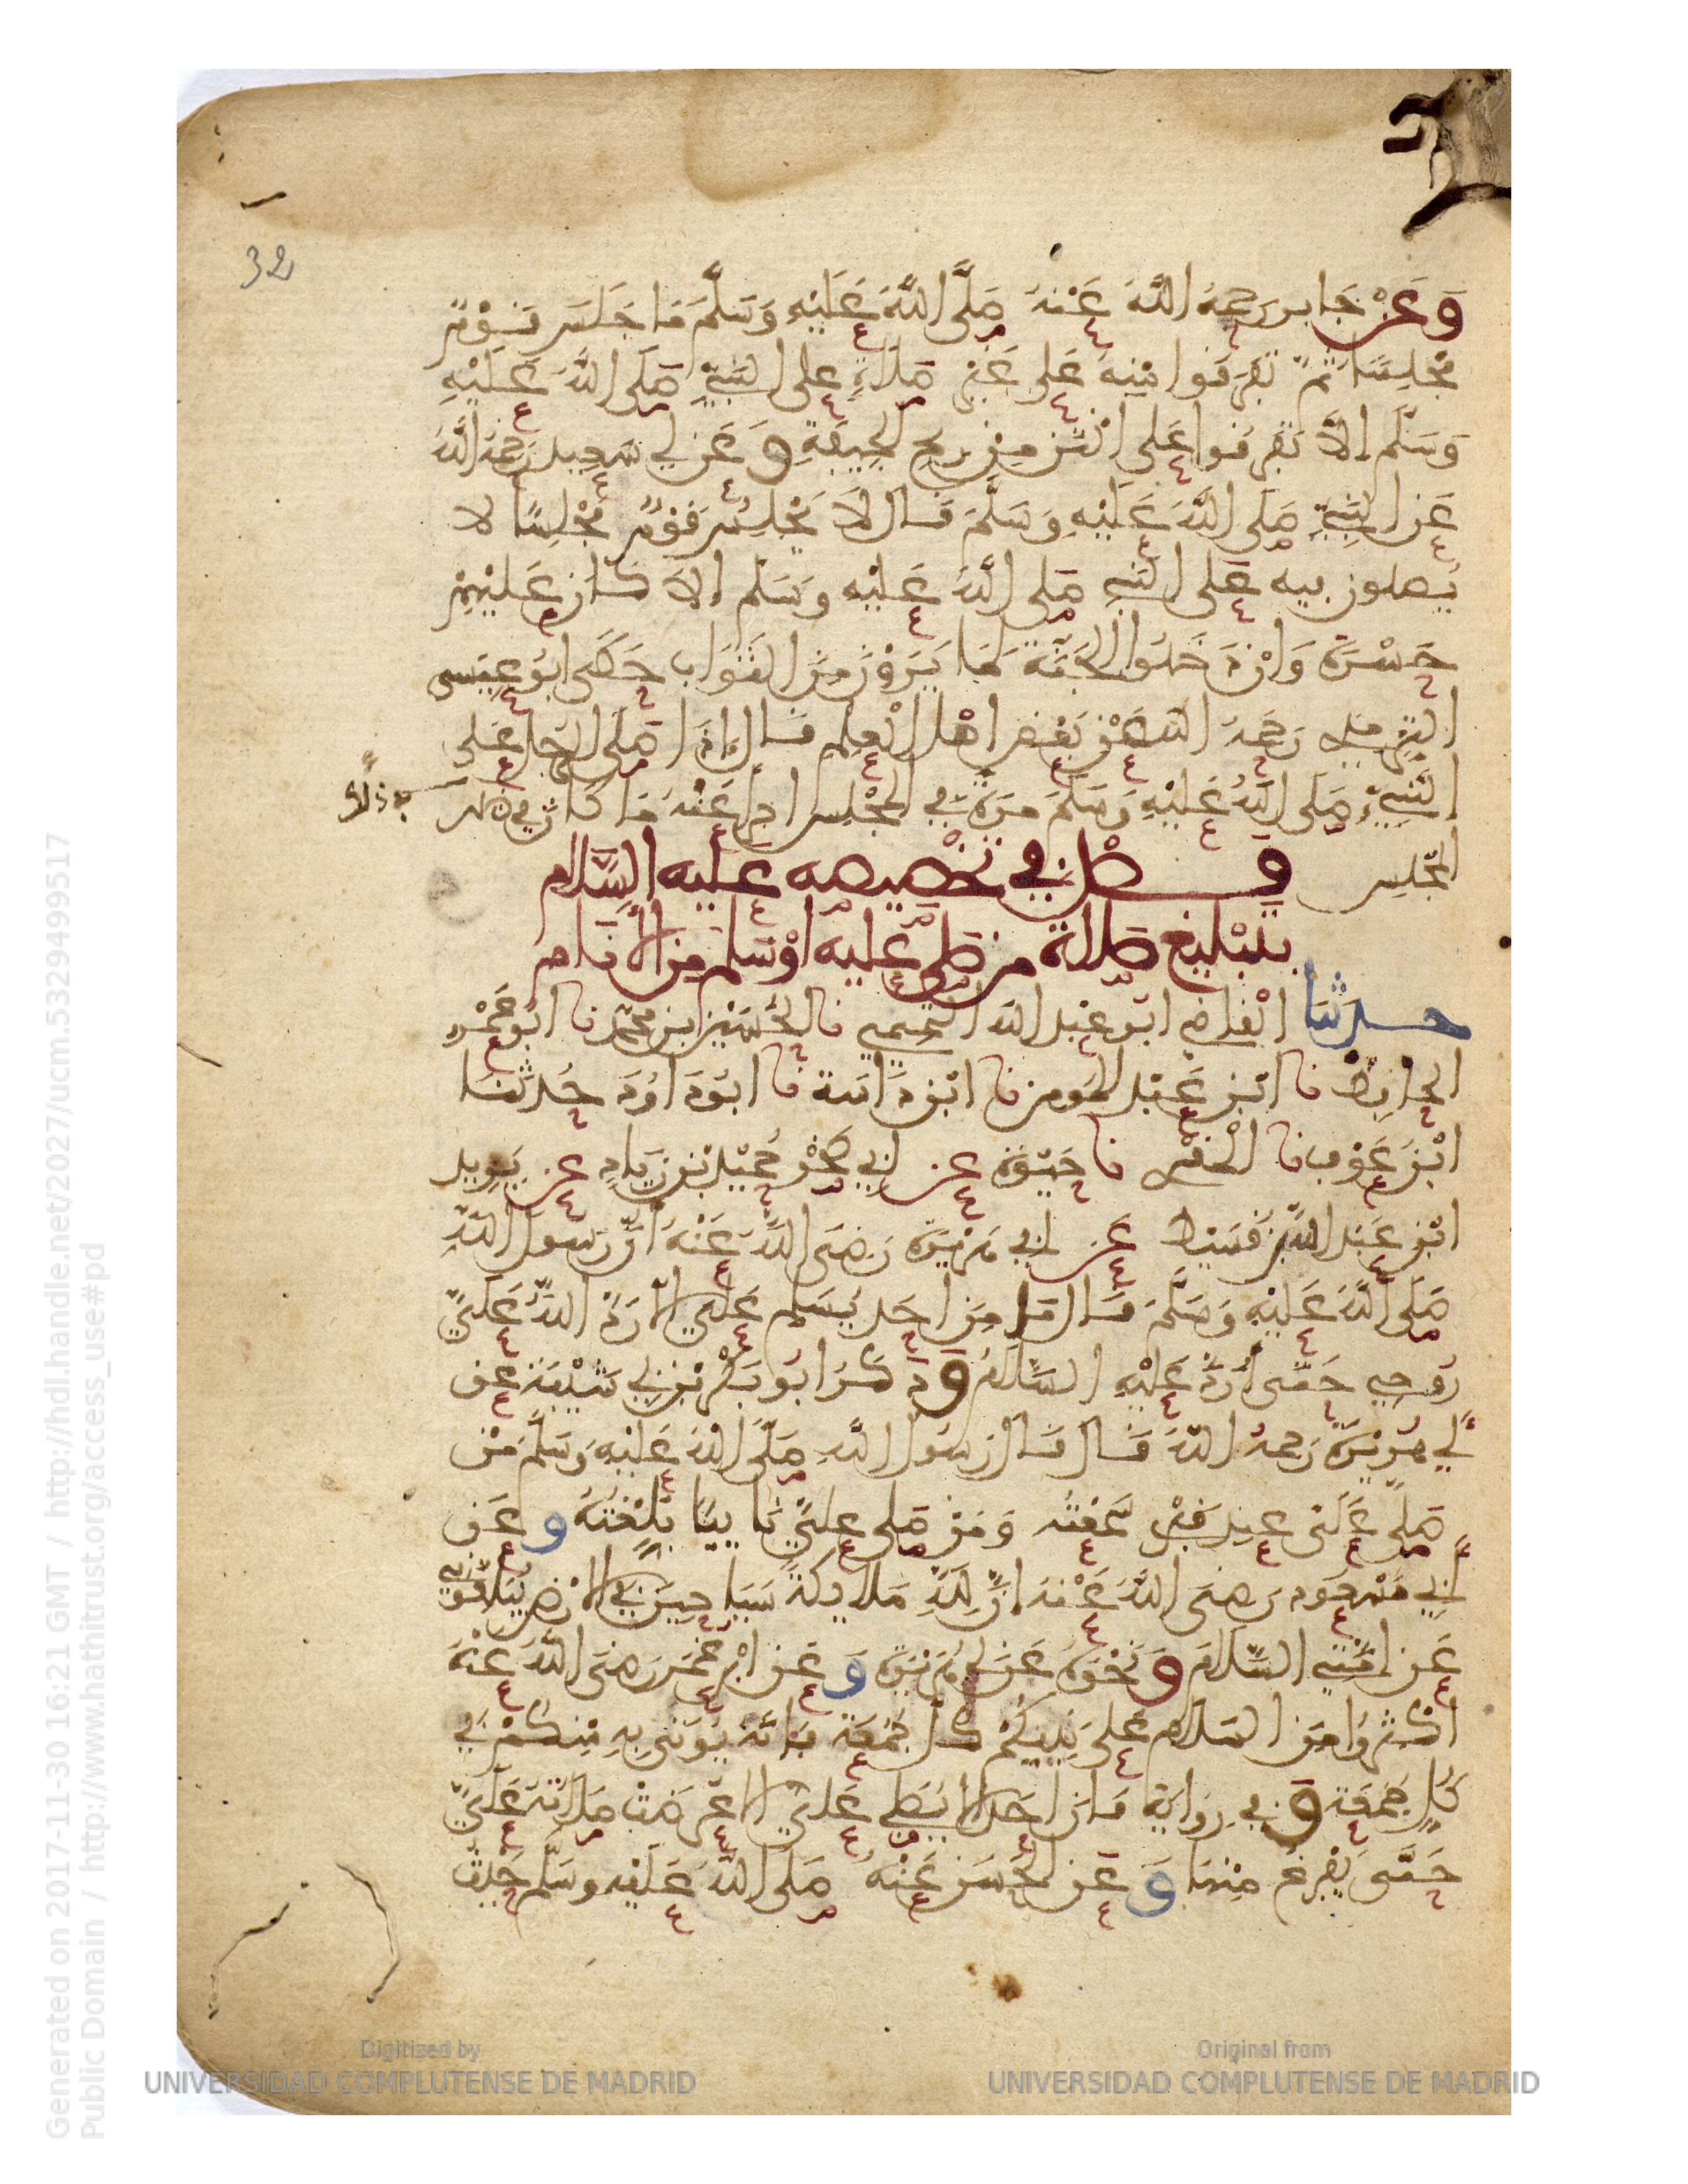 32
وَعَنْ جَابر رحمهُ اللَّهُ عَنْهُ صَلَّى اللَّهُ عَلَيْهِ وَسَلَّمَ مَا جَلَسَ قَوْمٌ
مَجْلِسًا ثُمَّ تَفَرَّقُوا مِنْهُ عَلى غَيْرِ صَلَاةٍ على النَّبِيِّ صَلَّى اللَّهُ عَلَيْهِ
وَسَلَّم إلاَّ تَفَرَّقُوا عَلى أَنْتَنِ مِنْ رِيحِ الْجِيفَةِ وَعَن أبِي سَعِيد رَحِمَهُ اللَّهُ
عَنِ النَّبِيِّ صَلَّى اللَّهُ عَلَيْهِ وَسَلَّمَ قَال لَا يَجْلِسُ قَوْمٌ مَجْلِسًا لا
يُصلون فيه عَلَى النَّبِي صَلى اللَّهُ عَلَيْهِ وَسَلم إلاّ كَان عَلَيْهِمْ
حَسْرَةً وَإِنْ دَخَلُوا الْجَنَّةَ لِمَا يَرَوْنَ مِنَ الثَّوَابِ حَكَى أبُو عِيسى
التِّرْمِذِي رَحِمَهُ اللَّه عَنْ بَعْضِ أهْلِ الْعِلمِ قَال إِذَا صَلَّى الرَّجل عَلى
النَّبِيِّ صَلى اللَّهُ عَلَيْهِ وَسَلَّمَ مرَّةً في الْمَجْلِس أجزأ عَنْهُ مَا كَان فِي ذلك
في ذلك
المَجلس فصل في تخصيصه عليه السَّلام
بتبليغ صلاة من صلى عليه أوْ سلم من الأنام
حدثنا القاضي أبو عبد الله التميمي نا الحُسَيْن ابن محمّد نا أبُو عُمَرَ
الحافِظُ نا ابْن عَبْد المومن نا ابْن دَاسة نا أبُو دَاوُدَ حدثنَا
ابْنُ عَوْف نا الْمُقْرِي نا حَيْوَة عن أبي صَخْر حُمَيْد بْن زِيَاد عن يَزِيد
ابْن عَبْد اللَّه بْنِ قُسَيْط عَن أبي هُرَيْرَةَ رَضِيَ اللَّهُ عَنْهُ أنَّ رَسول اللَّهِ
صَلى اللَّهُ عَلَيْهِ وَسَلَّمَ قَال مَا مِن أَحَد يُسَلِّم عَلَيَّ إلاّ رَدَّ اللَّهُ عَلَيَّ
رُوحِي حَتَّى أرُدَّ عَلَيْهِ السَّلَامُ وَذَكَرَ أبُو بَكْر بْن أبِي شَيْبَة عَن
أبِي هُرَيْرَةَ رَحِمهُ اللَّهُ قَال قَال رَسُول اللَّه صَلَّى اللَّهُ عَلَيْهِ وَسَلَّم مَنْ
صَلى عَلَيَّ عِند قَبْرِي سَمِعْتُه وَمَن صَلى عليّ نَائِيًا بُلِّغْتُهُ وعَن
أبِي مَسْعُود رَضِيَ اللَّهُ عَنْهُ إنَّ لِلَّهِ مَلايكَةً سَيَّاحِينَ في الأرْضِ يُبَلِّغُونِي
عَن أُمَّتِي السَّلَامَ وَنَحْوهُ عَن أبِي هُرَيْرَة وَعَن ابْن عُمَر رَضِيَ اللَّهُ عَنْهُ
أكْثِرُوا مِنَ السَّلَام عَلى نَبِيِّكُمْ كُلَّ جُمُعَةٍ فَإِنَّهُ يُوتَى بِهِ مِنكُمْ في
كُلِّ جُمُعَةٍ وَفِي رِوَايَةٍ فَإنَّ أحَدًا لا يُصَلِّي عَلَيَّ إلاَّ عُرِضَتْ صَلَاتُهُ عَلَيَّ
حَتَّى يَفْرغَ مِنْهَا وَعَن الْحَسَن عَنْهُ صَلى اللَّهُ عَلَيْهِ وَسَلم حَيْثُ
Digitized by
UNIVERSIDAD COMPLUTENSE DE MADRID
Original from
UNIVERSIDAD COMPLUTENSE DE MADRID
Generated on 2017-11-30 16:21 GMT / http://hdl.handle.net/2027/ucm.5329499517
Public Domain / http://www.hathitrust.org/access_use#pd